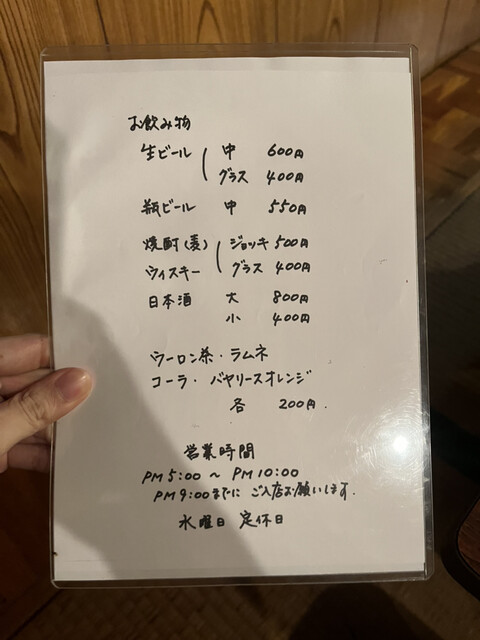 お飲み物
生ビール 中 600円
グラス 400円
瓶ビール 中 550円
焼酎(麦) ジョッキ 500円
ウィスキー グラス 400円
日本酒 大 800円
小 400円
ウーロン茶・ラムネ
コーラ・バヤリースオレンジ
各 200円.
営業時間
PM 5:00 ～ PM 10:00
PM 9:00までに ご入店お願いします.
水曜日 定休日